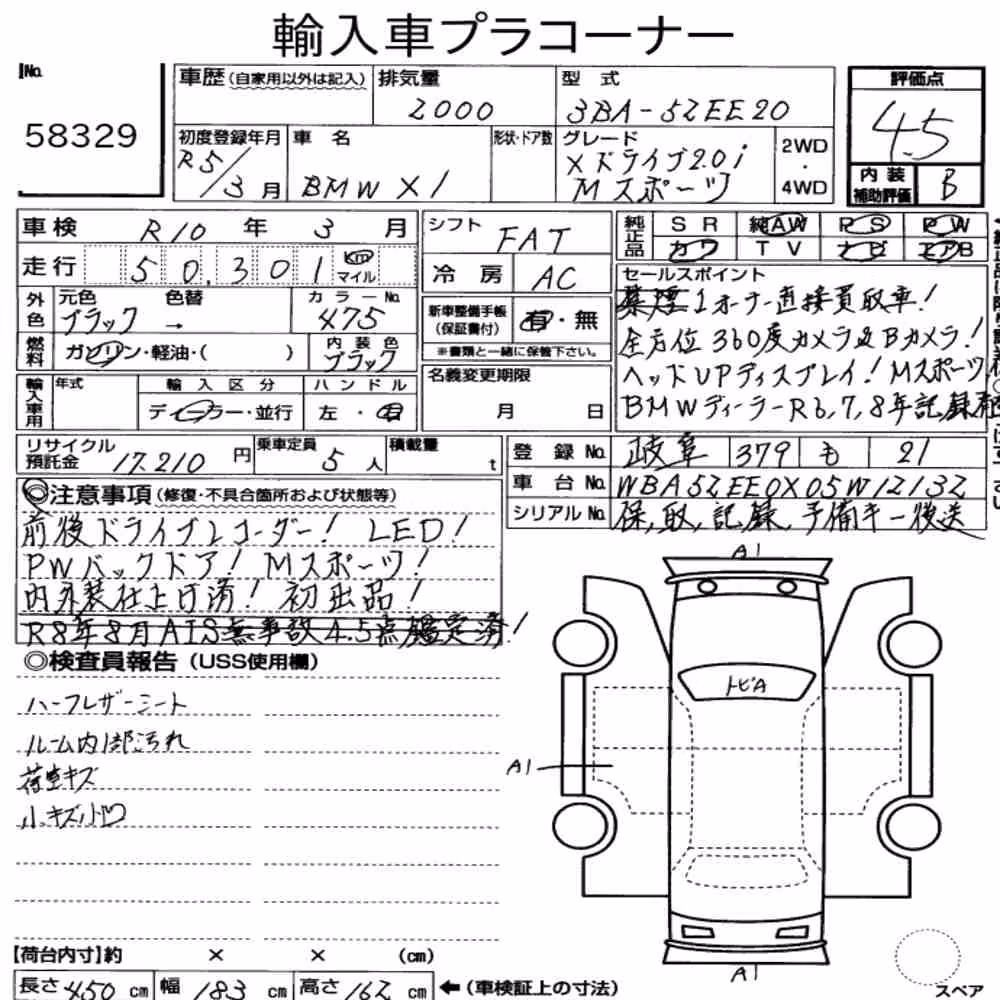 輸入車プラコーナー
No.
58329
車歴(自家用以外は記入) 排気量 2000 型式 3BA-5ZEE20
初度登録年月 R5/3月 車名 BMW X1 形状・ドア数 グレード Xドライブ2.0i Mスポーツ 2WD・4WD
評価点 4.5
内装補助評価 B
車検 R10年3月
走行 50,301 km マイル
外色 元色 ブラック 色替 → カラーNo. 475
燃料 ガソリン・軽油・( ) 内装色 ブラック
輸入車用 年式 輸入区分 ディーラー・並行 ハンドル 左・右
シフト FAT
冷房 AC
新車整備手帳(保証書付) 有・無
※書類と一緒に保管下さい。
名義変更期限 月 日
純正品 SR 純AW PS PW
カワ TV ナビ エアB
セールスポイント
禁煙1オーナー直接買取車!
全方位360度カメラ&Bカメラ!
ヘッドUPディスプレイ!Mスポーツ
BMWディーラーR6,7,8年記録簿
リサイクル預託金 17,210円 乗車定員 5人 積載量 t
登録No. 岐阜 379 も 21
車台No. WBA5ZEE0X05W1Z13Z
シリアルNo. 保,取,記録,予備キー後送
◎注意事項(修復・不具合箇所および状態等)
前後ドライブレコーダー! LED!
PWバックドア! Mスポーツ!
内外装仕上げ済! 初出品!
R8年8月AIS無事故4.5点鑑定済!
◎検査員報告(USS使用欄)
ハーフレザーシート
ルーム内1部汚れ
荷室キズ
小キズ小凹
A1
トビA
A1
A1
スペア
【荷台内寸】約 × × (cm)
長さ 450 cm 幅 183 cm 高さ 162 cm ←(車検証上の寸法)